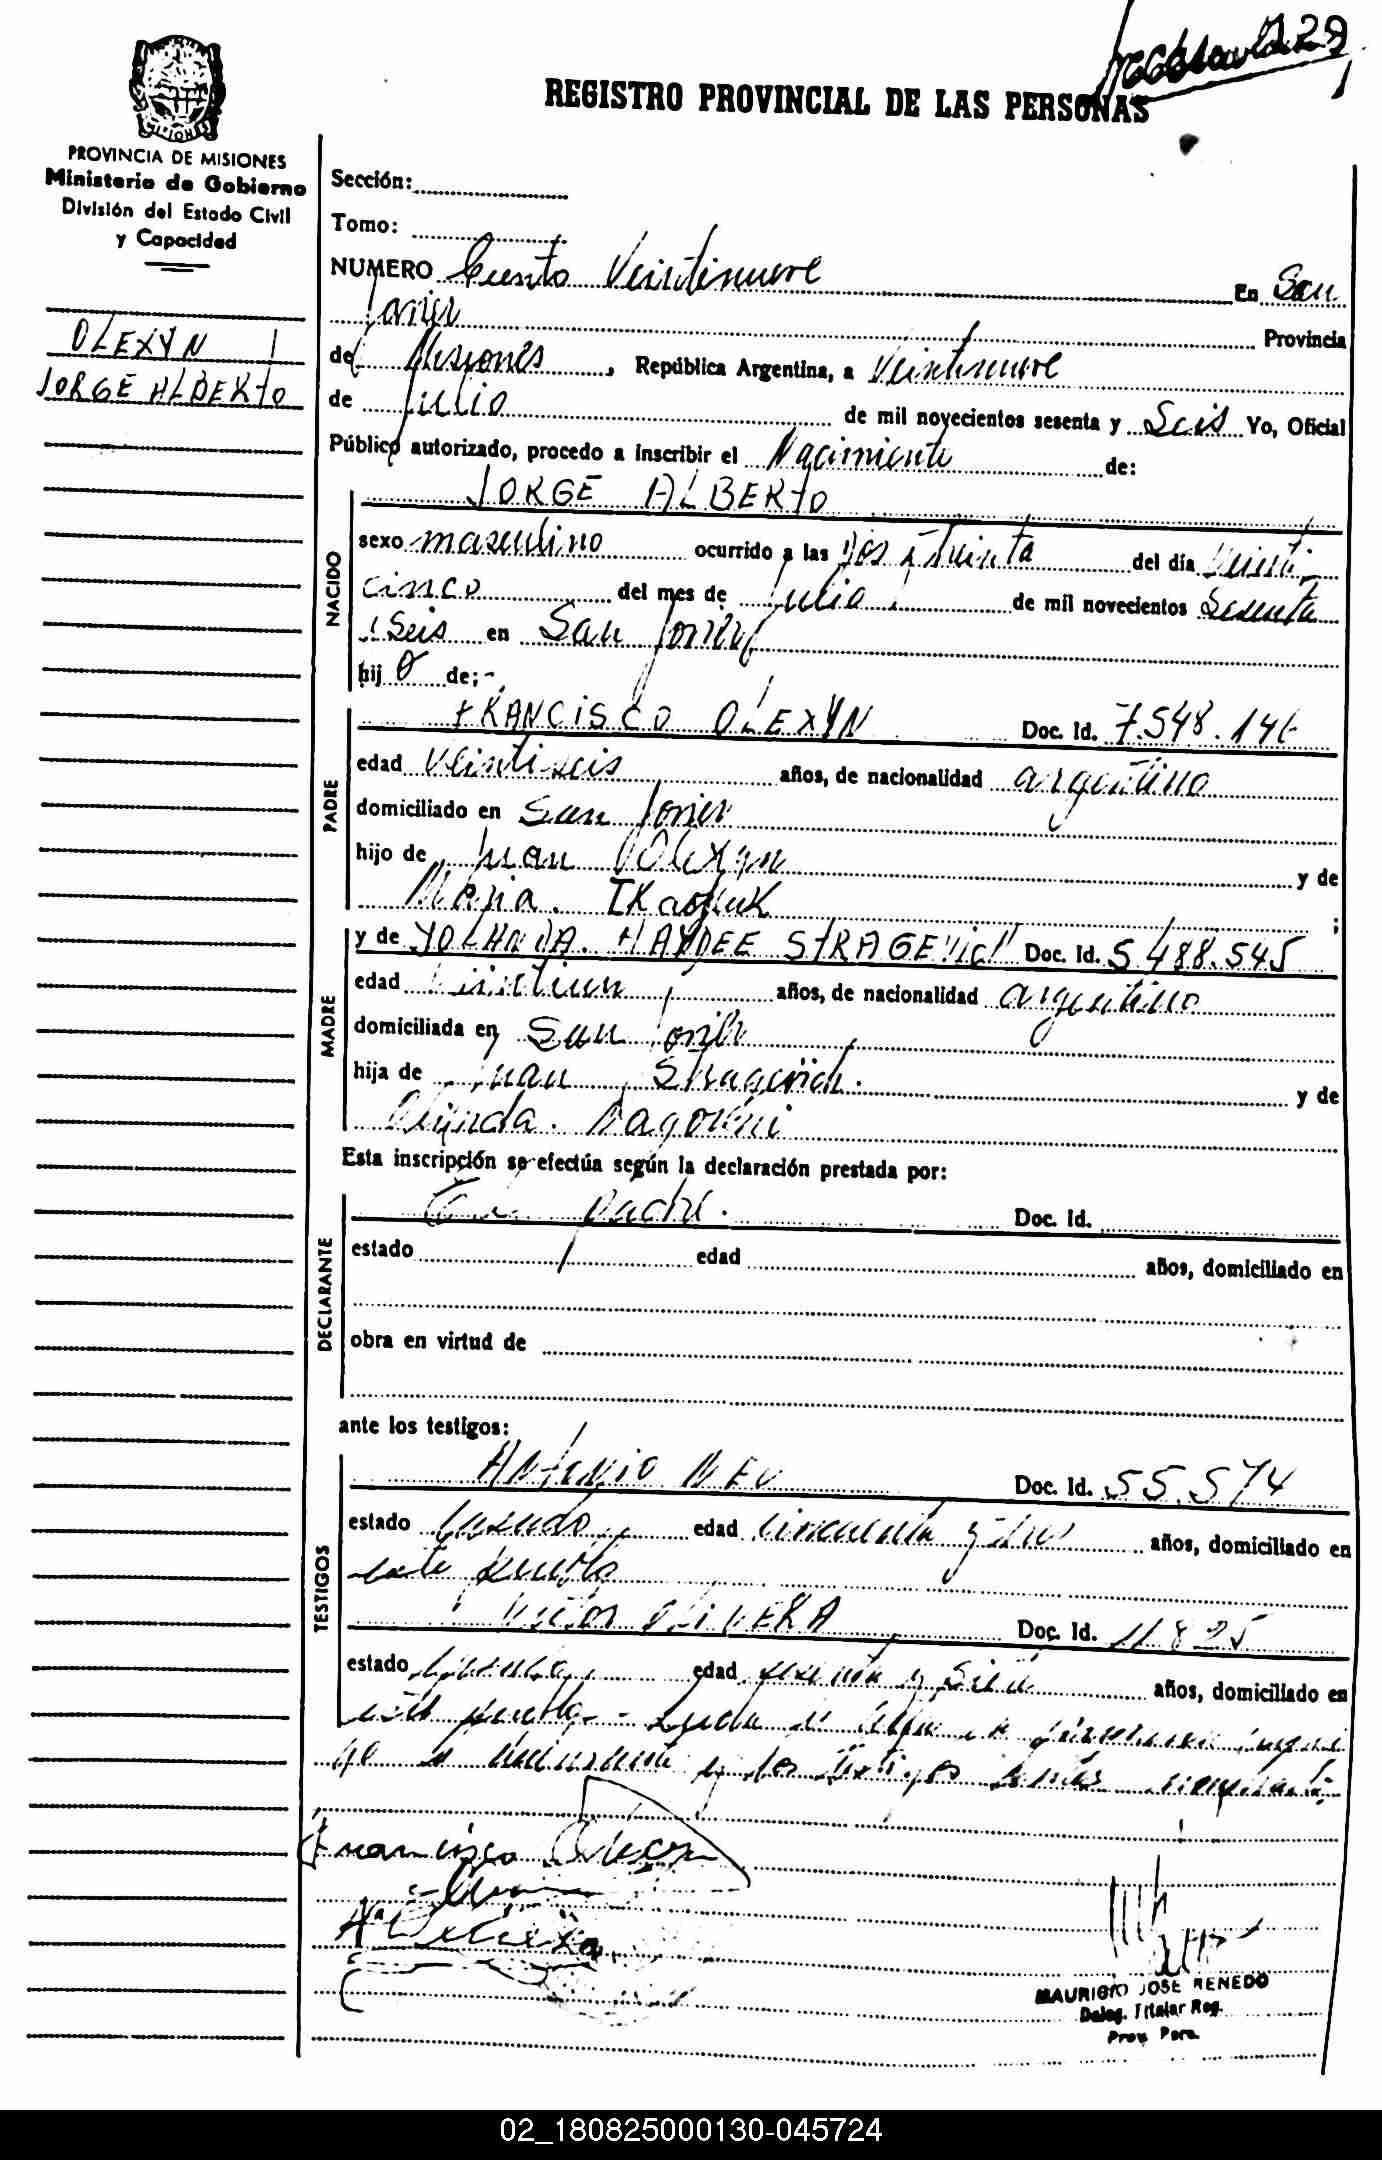 129
REGISTRO PROVINCIAL DE LAS PERSONAS
MISIONES
PROVINCIA DE MISIONES
Ministerio de Gobierno
División del Estado Civil
y Capacidad
OLEXYN
JORGE ALBERTO
Sección:
Tomo:
NUMERO Ciento Veintinueve En San
Javier Provincia
de Misiones, República Argentina, a Veintinueve
de Julio de mil novecientos sesenta y Seis Yo, Oficial
Público autorizado, procedo a inscribir el Nacimiento de:
JORGE ALBERTO
NACIDO
sexo masculino ocurrido a las Dos y treinta del día Veinti
cinco del mes de Julio de mil novecientos Sesenta
y Seis en San Javier
hijo de;-
PADRE
FRANCISCO OLEXYN Doc. Id. 7.548.146
edad Veintiseis años, de nacionalidad argentino
domiciliado en San Javier
hijo de Juan Olexyn y de
Maria ;
MADRE
y de YOLANDA HAYDEE STRAGEVICH Doc. Id. 5.488.545
edad Veintiun años, de nacionalidad argentino
domiciliada en San Javier
hija de Juan Stragevich. y de
Esta inscripción se efectúa según la declaración prestada por:
DECLARANTE
El padre. Doc. Id.
estado edad años, domiciliado en
obra en virtud de
ante los testigos:
TESTIGOS
ANTONIO NEU Doc. Id. 55.574
estado Casado edad Cincuenta y tres años, domiciliado en
este pueblo
VICTOR OLIVERA Doc. Id. 11.825
estado Casado edad sesenta y Siete años, domiciliado en
este pueblo.- Leida el Acta la firman conmigo
el declarante y los testigos
Francisco Olexyn
MAURICIO JOSE RENEDO
Deleg. Titular Reg.
Prov. Pers.
02_180825000130-045724